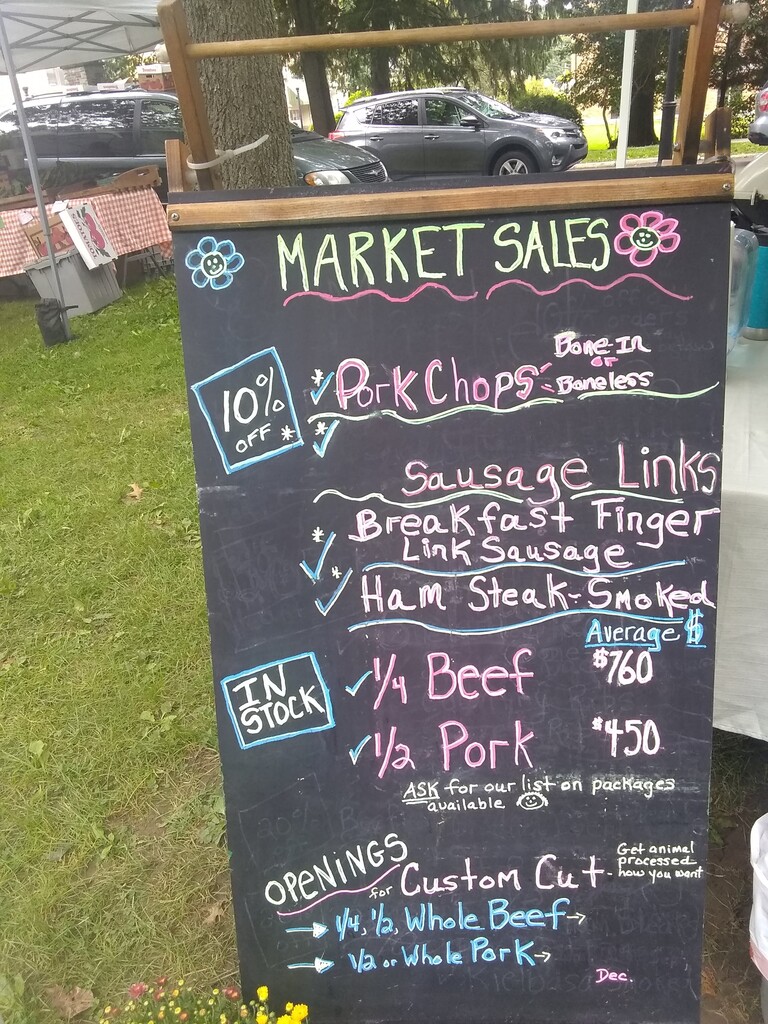 MARKET SALES
10% OFF *
* ✓ Pork Chops: Bone-In or Boneless
* ✓
Sausage Links
* ✓ Breakfast Finger
Link Sausage
* ✓ Ham Steak-Smoked
Average $
IN STOCK
✓ 1/4 Beef $760
✓ 1/2 Pork $450
ASK for our list on packages
available
OPENINGS
for Custom Cut - Get animal
processed
how you want
→ 1/4, 1/2, Whole Beef →
→ 1/2 or Whole Pork →
Dec.